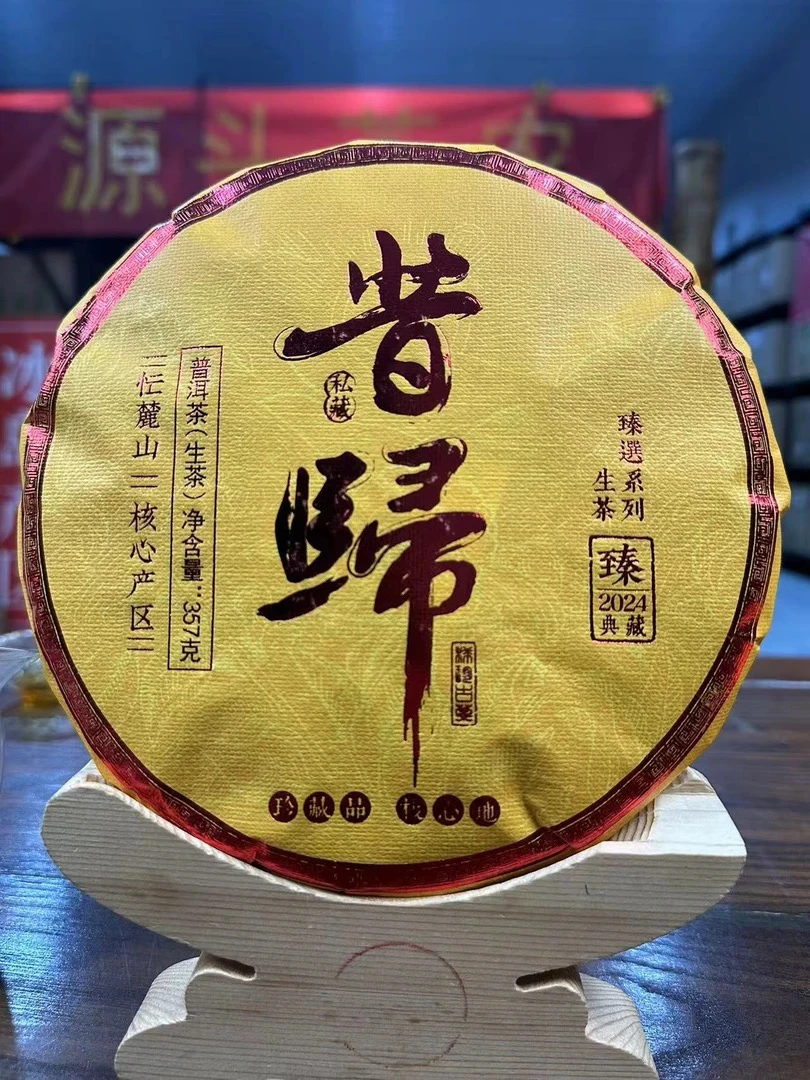 昔歸
私藏
臻選系列
生茶
臻
2024
典藏
普洱茶(生茶) 净含量:357克
忙麓山 核心产区
珍藏品 核心地
源斗茶农